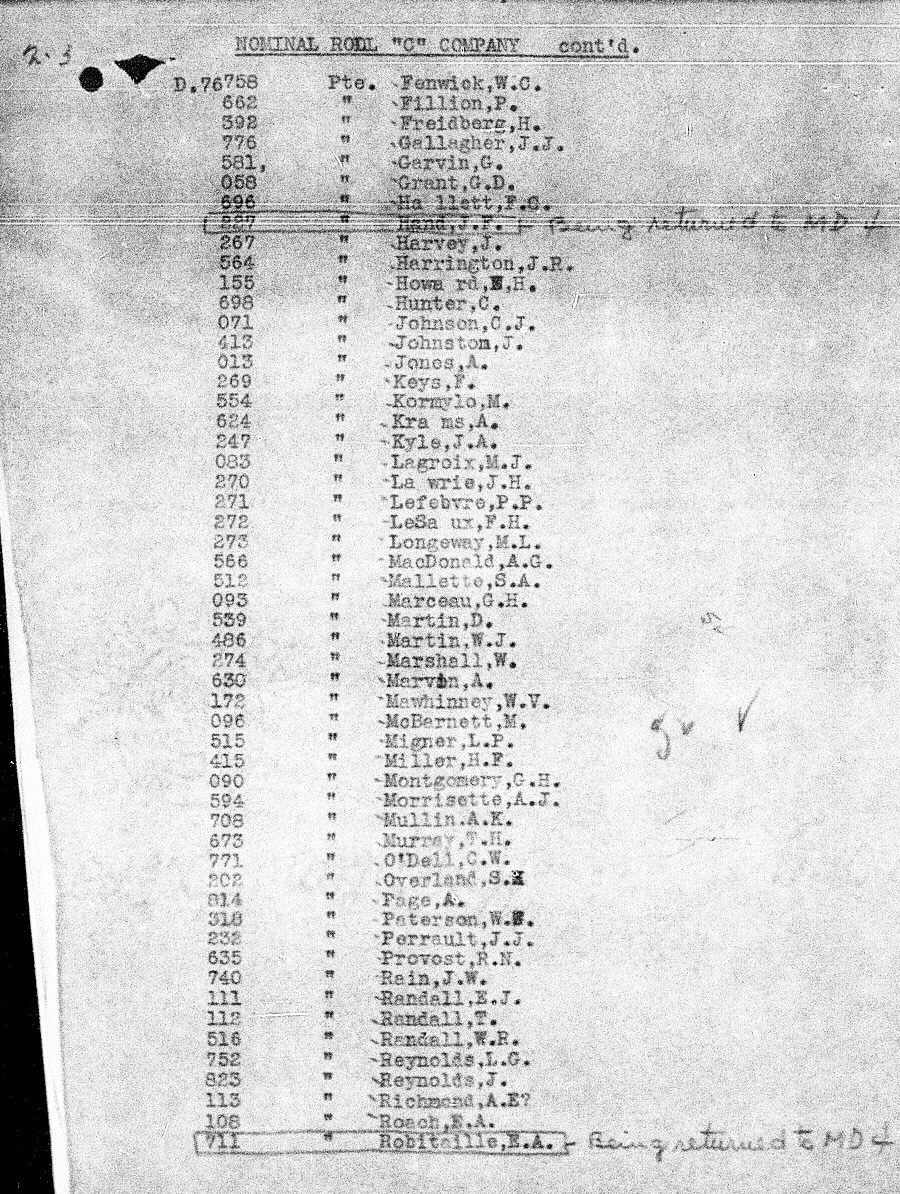 2.3
NOMINAL ROLL "C" COMPANY cont'd.
D.76758 Pte. Fenwick,W.C.
662 " Fillion,P.
392 " Freidberg,H.
776 " Gallagher,J.J.
581, " Garvin,G.
058 " Grant,G.D.
696 " Ha llett,F.G.
227 " Hand,J.F. - Being returned to MD 4
267 " Harvey,J.
564 " Harrington,J.R.
155 " Howa rd, ,H.
698 " Hunter,C.
071 " Johnson,C.J.
413 " Johnston,J.
013 " Jones,A.
269 " Keys,F.
554 " Kormylo,M.
624 " Kra ms,A.
247 " Kyle,J.A.
083 " Lagroix,M.J.
270 " La wrie,J.H.
271 " Lefebvre,P.P.
272 " LeSa ux,F.H.
273 " Longeway,M.L.
566 " MacDonald,A.G.
512 " Mallette,S.A.
093 " Marceau,G.H.
539 " Martin,D.
486 " Martin,W.J.
274 " Marshall,W.
630 " Marvin,A.
172 " Mawhinney,W.V.
096 " McBernett,M.
515 " Migner,L.P.
415 " Miller,H.F.
090 " Montgomery,G.H.
594 " Morrisette,A.J.
708 " Mullin.A.K.
673 " Murray,T.H.
771 " O'Dell,C.W.
202 " Overland,S.
814 " Page,A.
318 " Paterson,W. .
232 " Perrault,J.J.
635 " Provost,R.N.
740 " Rain,J.W.
111 " Randall,E.J.
112 " Randall,T.
516 " Randall,W.R.
752 " Reynolds,L.G.
823 " Reynolds,J.
113 " Richmond,A.E?
108 " Roach,E.A.
711 " Robitaille,E.A. - Being returned to MD 4